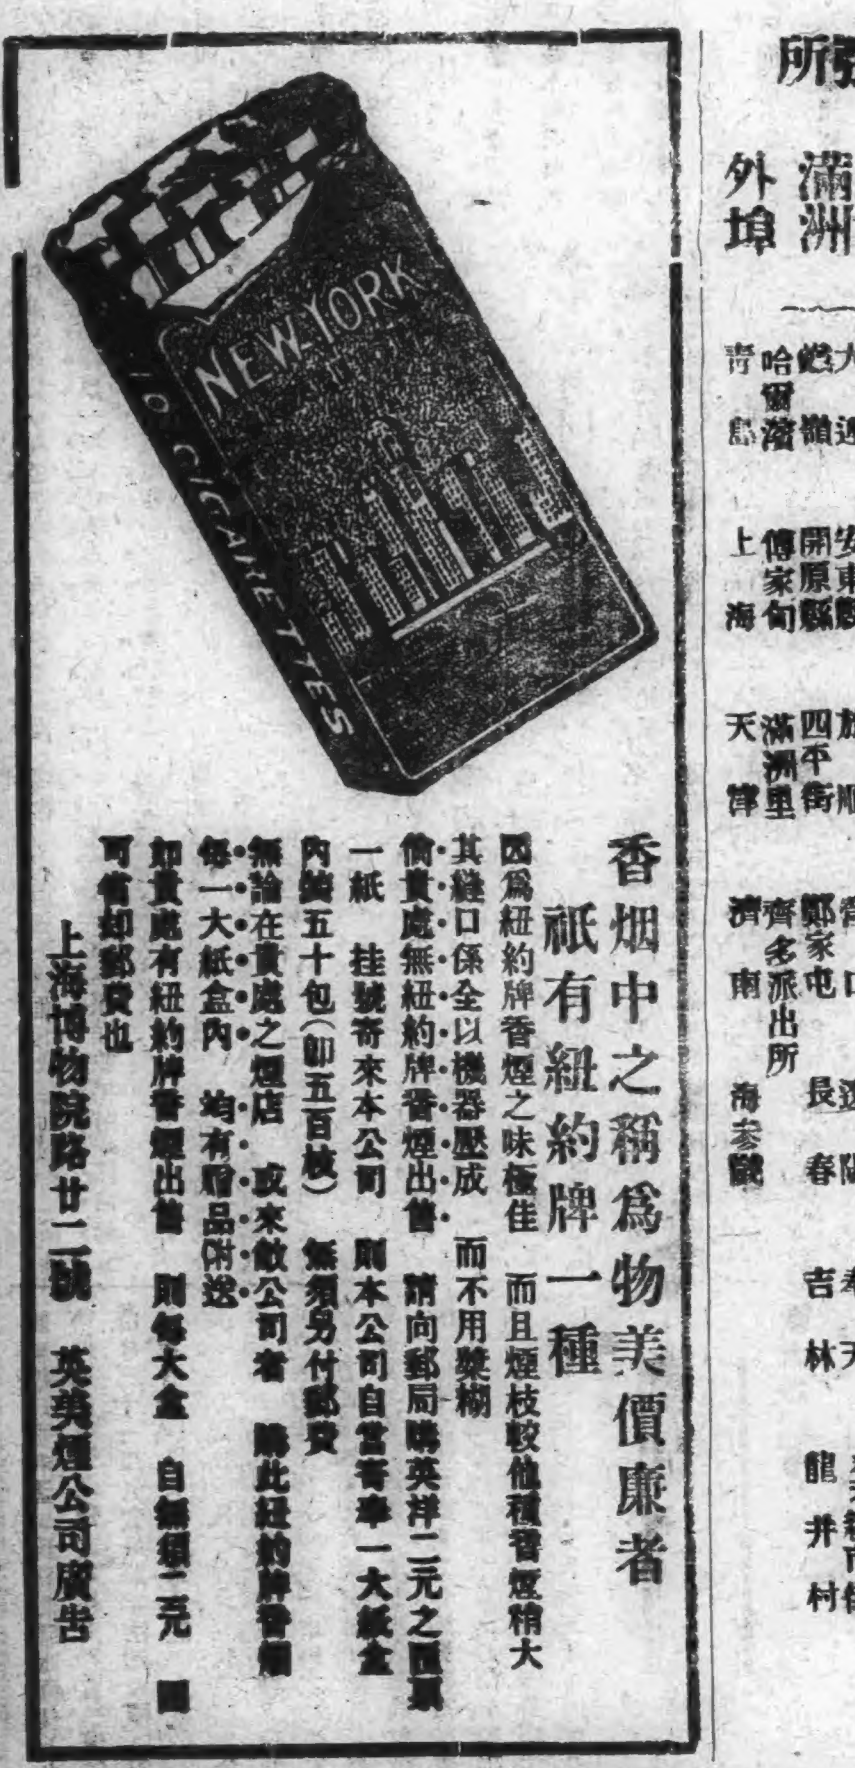 NEW YORK
10 CIGARETTES
香烟中之稱爲物美價廉者
祇有紐約牌一種
因爲紐約牌香煙之味極佳 而且煙枝較他種香煙稍大
其縫口係全以機器壓成 而不用漿糊
倘貴處無紐約牌香煙出售 請向郵局購英洋二元之匯票
一紙 挂號寄來本公司 則本公司自當寄奉一大紙盒
內裝五十包(卽五百枝) 無須另付郵費
無論在貴處之煙店 或來敝公司者 購此紐約牌香烟
每一大紙盒內 均有贈品附送
如貴處有紐約牌香煙出售 則每大盒 自無須二元
可省却郵費也
上海博物院路廿二號 英美煙公司廣告
所
滿洲
外埠
大
安東縣
營口
四平街
鄭家屯
長春
吉林
龍井村
開原縣
哈爾濱
傅家甸
滿洲里
齊多派出所
青島
上海
天津
濟南
海參